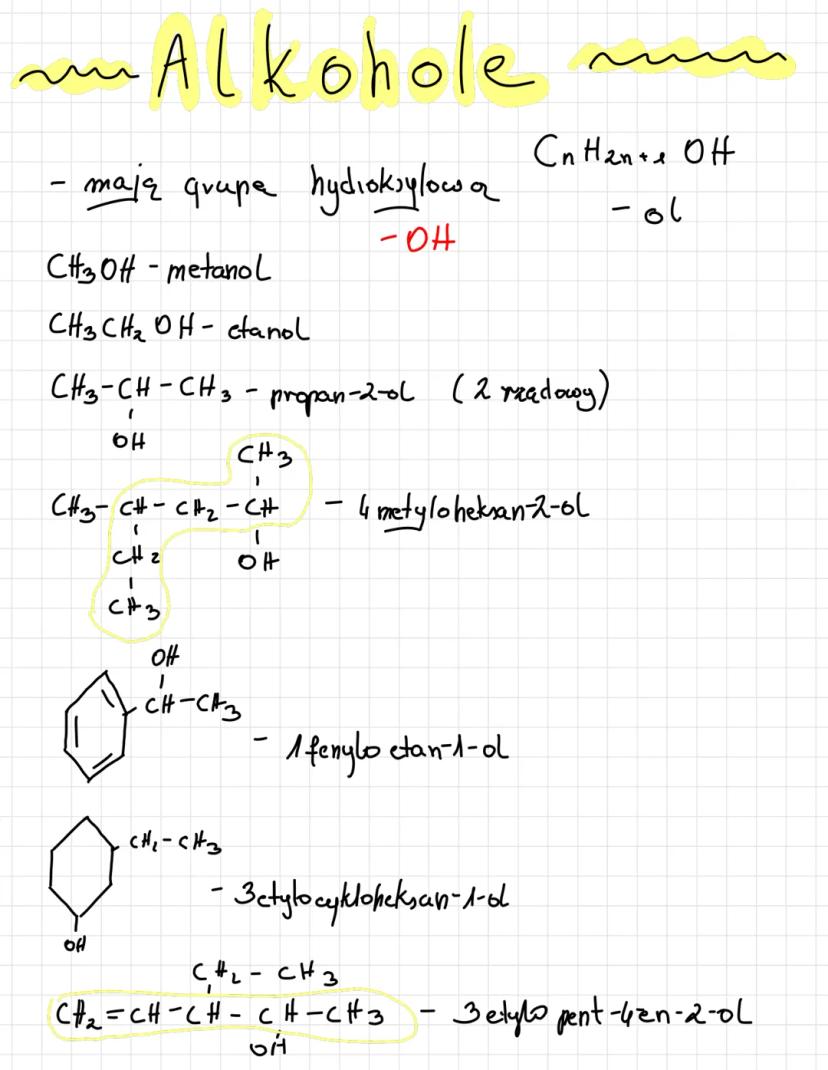 Alkohole
- mają grupę hydroksylową CnH2n+1 OH
- OH - ol
CH3OH - metanol
CH3CH2OH - etanol
CH3-CH-CH3 - propan-2-ol (2 rzędowy)
OH
CH3
CH3-CH-CH2-CH - 4 metyloheksan-2-ol
CH2 OH
CH3
OH
CH-CH3
- 1 fenylo etan-1-ol
CH2-CH3
- 3 etylocykloheksan-1-ol
OH
CH2-CH3
CH2=CH-CH-CH-CH3 - 3 etylo pent-4en-2-ol
OH